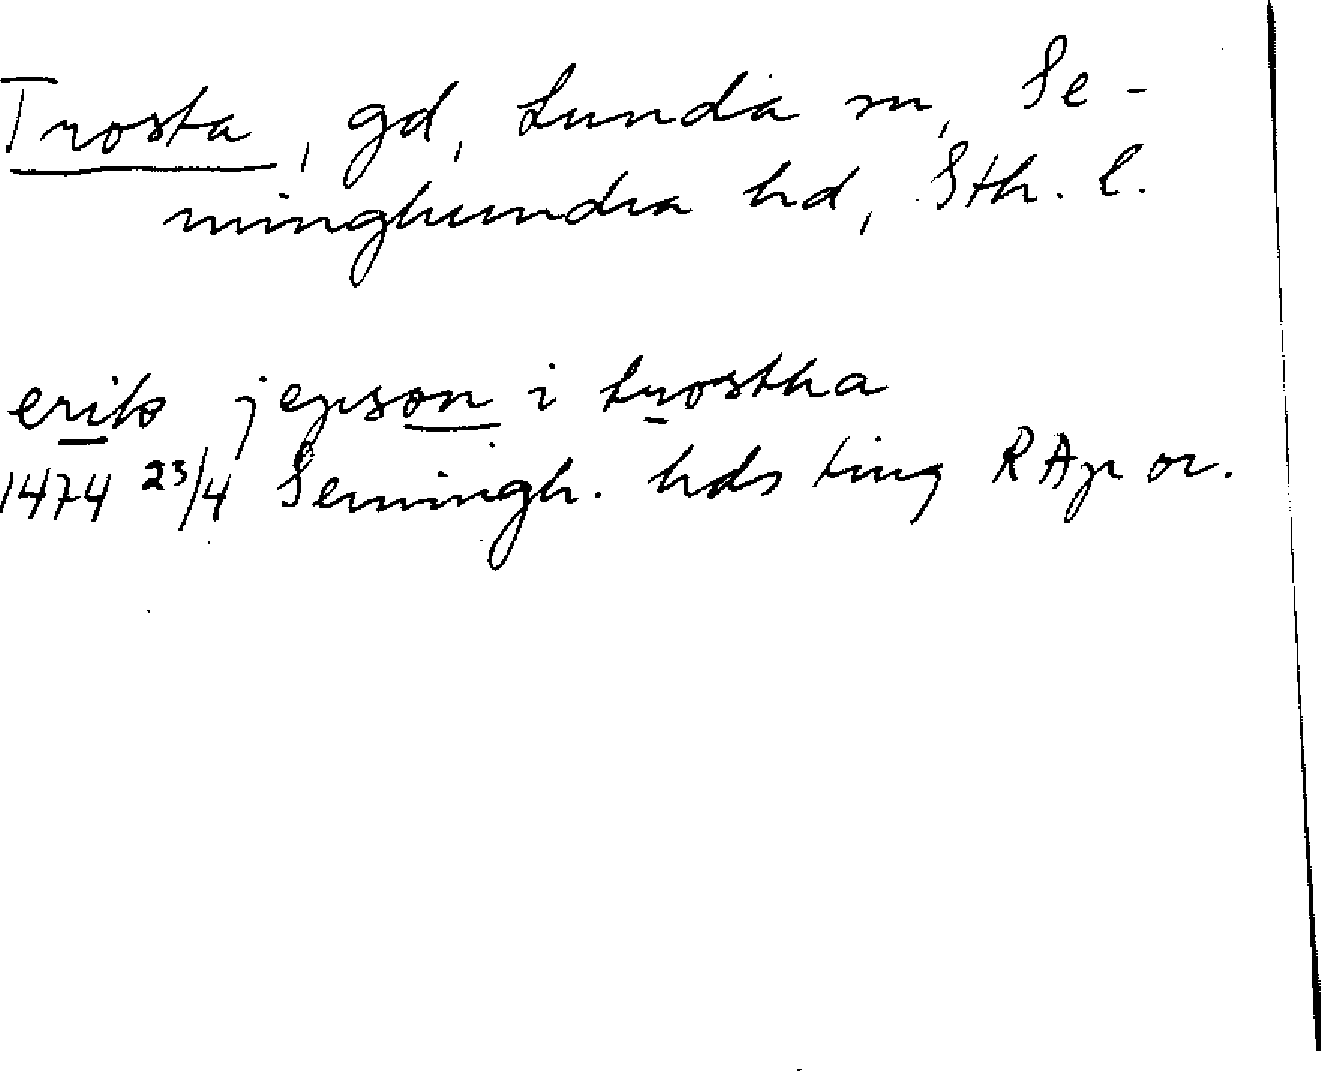 Trosta, gd, Lunda sn, Se-
minghundra hd, Sth. l.
erik jepson i trostha
1474 23/4 Semingh. hds ting RAp or.